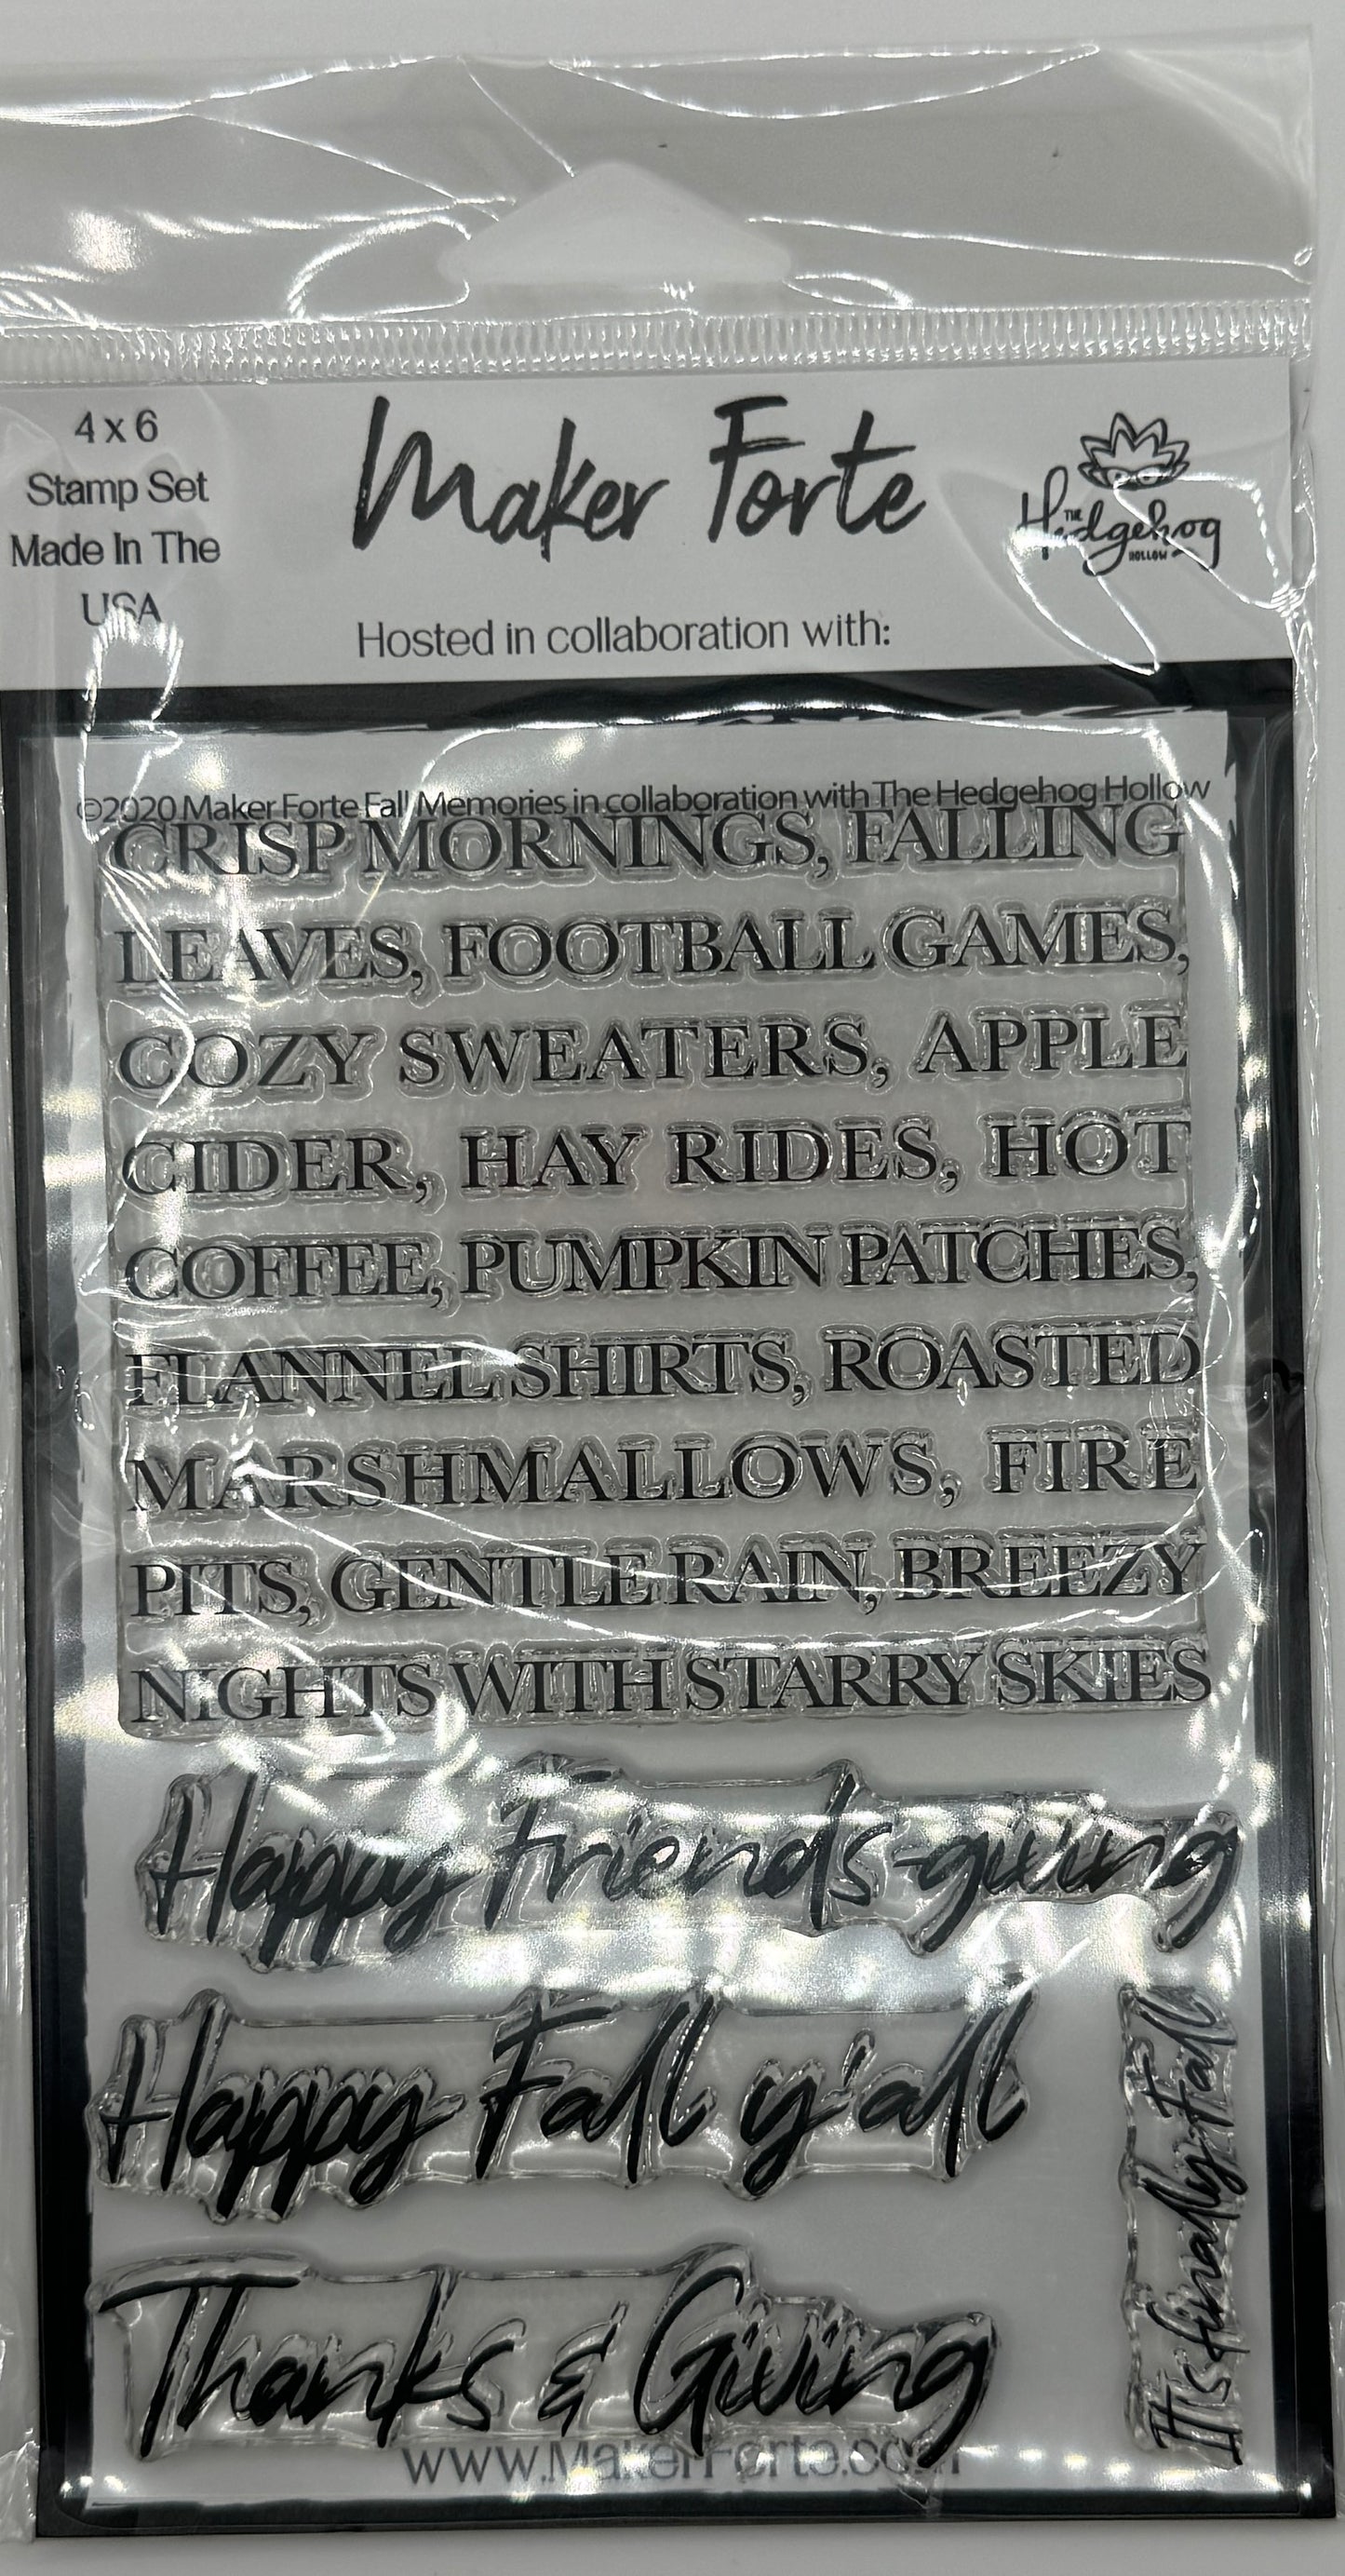 4 x 6
Stamp Set
Made In The
USA
Maker Forte
THE
Hedgehog
HOLLOW
Hosted in collaboration with:
©2020 Maker Forte Fall Memories in collaboration with The Hedgehog Hollow
CRISP MORNINGS, FALLING
LEAVES, FOOTBALL GAMES,
COZY SWEATERS, APPLE
CIDER, HAY RIDES, HOT
COFFEE, PUMPKIN PATCHES,
FLANNEL SHIRTS, ROASTED
MARSHMALLOWS, FIRE
PITS, GENTLE RAIN, BREEZY
NIGHTS WITH STARRY SKIES
Happy Friends-giving
Happy Fall y'all
It's finally Fall
Thanks & Giving
www.MakerForte.com